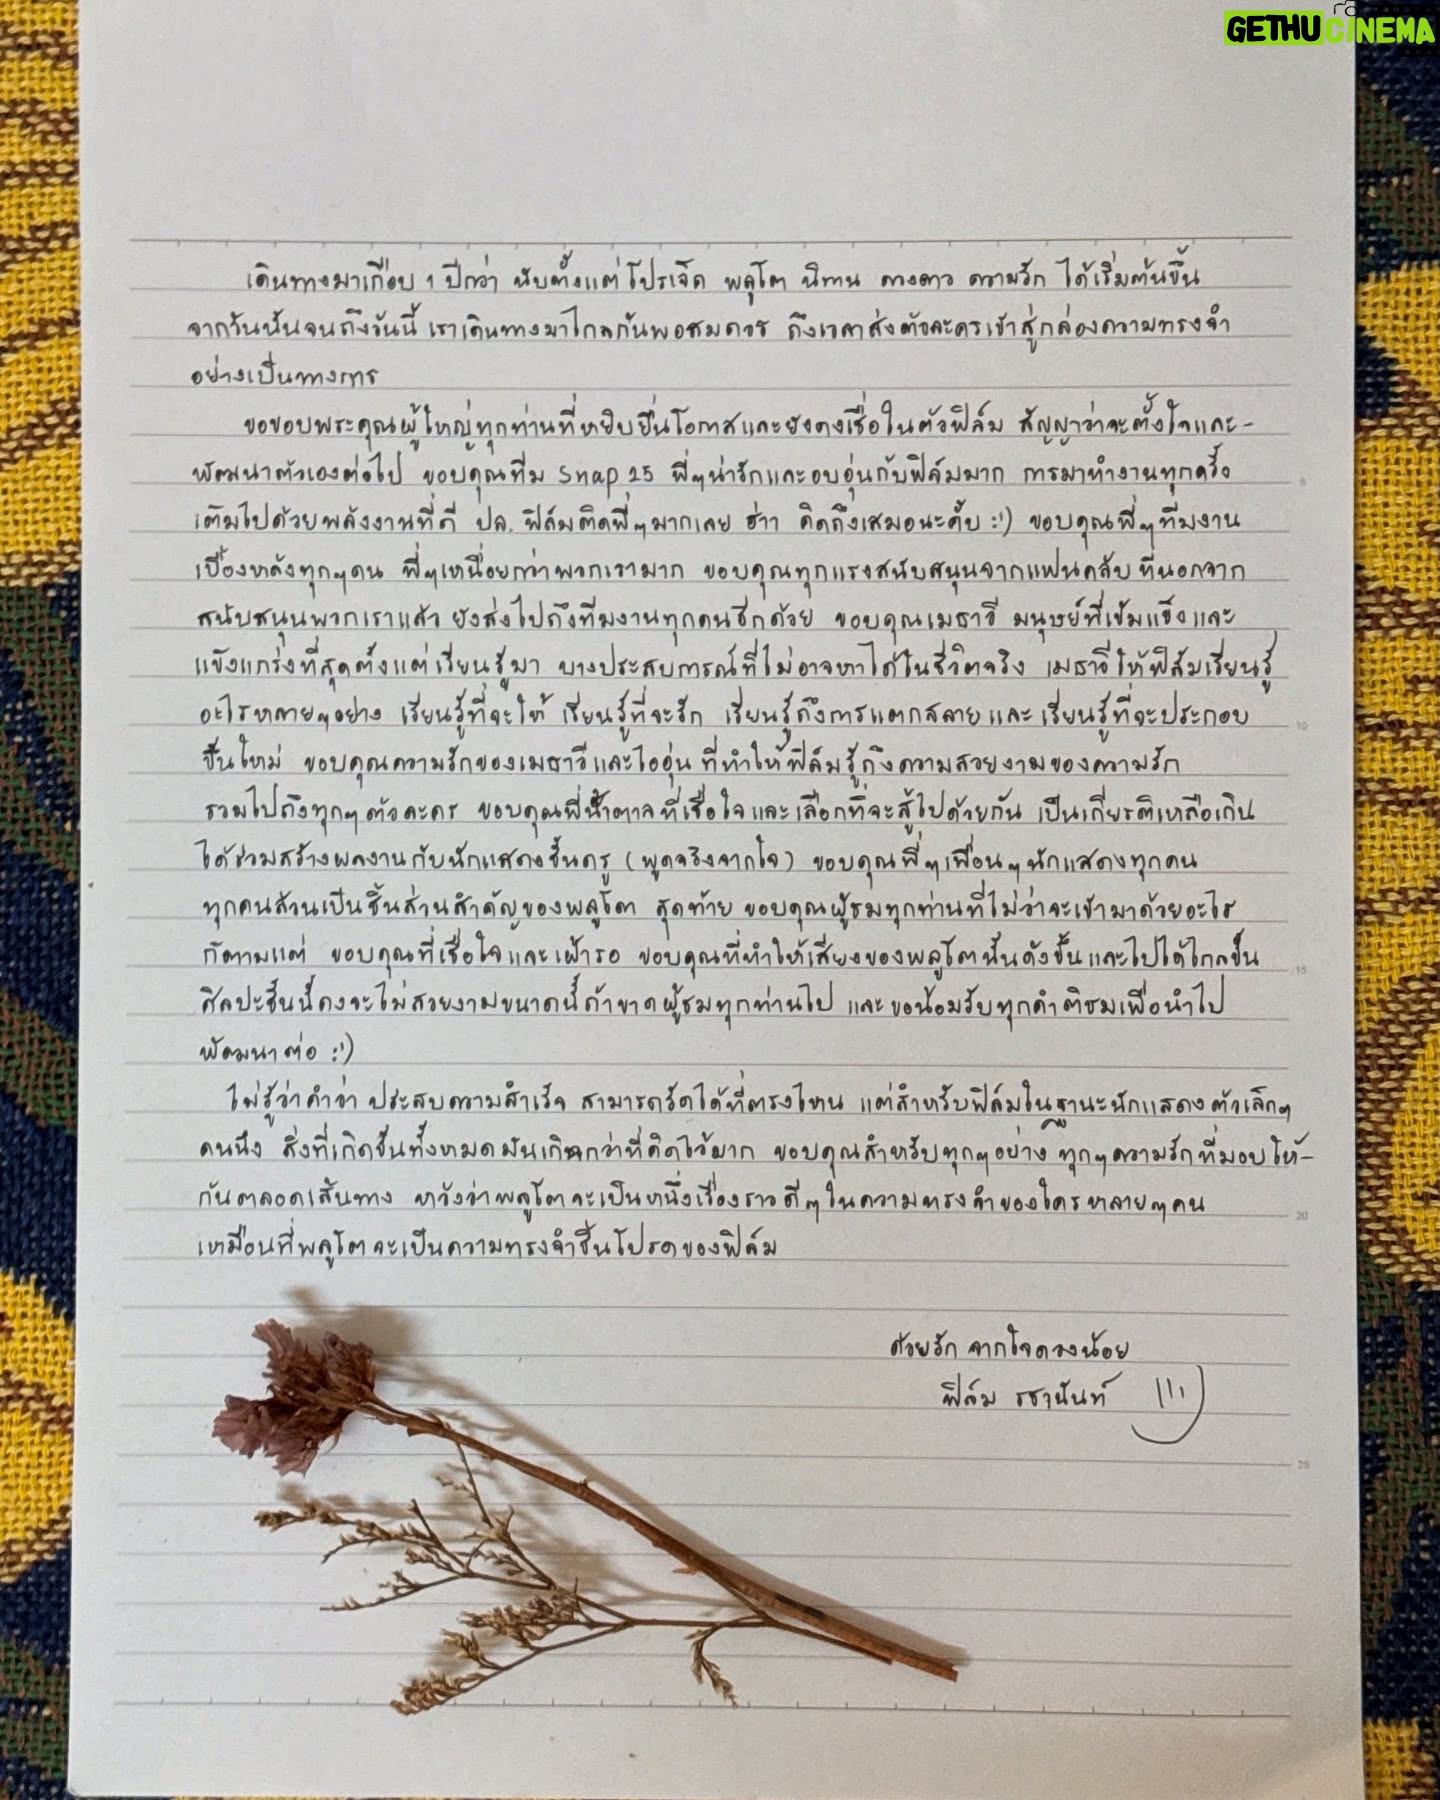 GETHUCINEMA
เดินทางมาเกือบ 1 ปีกว่า นับตั้งแต่โปรเจ็ค พลูโต นิทาน ดวงดาว ความรัก ได้เริ่มต้นขึ้น
จากวันนั้นจนถึงวันนี้ เราเดินทางมาไกลกันพอสมควร ถึงเวลาส่งตัวละครเข้าสู่กล่องความทรงจำ
อย่างเป็นทางการ
ขอขอบพระคุณผู้ใหญ่ทุกท่านที่หยิบยื่นโอกาสและยังคงเชื่อในตัวฟิล์ม สัญญาว่าจะตั้งใจและ-
พัฒนาตัวเองต่อไป ขอบคุณทีม Snap 25 พี่ๆน่ารักและอบอุ่นกับฟิล์มมาก การมาทำงานทุกครั้ง
เต็มไปด้วยพลังงานที่ดี ปล. ฟิล์มติดพี่ๆมากเลย ฮ่าๆ คิดถึงเสมอนะคั้บ :') ขอบคุณพี่ๆทีมงาน
เบื้องหลังทุกๆคน พี่ๆเหนื่อยกว่าพวกเรามาก ขอบคุณทุกแรงสนับสนุนจากแฟนคลับ ที่นอกจาก
สนับสนุนพวกเราแล้ว ยังส่งไปถึงทีมงานทุกคนอีกด้วย ขอบคุณเมธาวี มนุษย์ที่เข้มแข็งและ
แข็งแกร่งที่สุดตั้งแต่เรียนรู้มา บางประสบการณ์ที่ไม่อาจหาได้ในชีวิตจริง เมธาวีให้ฟิล์มเรียนรู้
อะไรหลายๆอย่าง เรียนรู้ที่จะให้ เรียนรู้ที่จะรัก เรียนรู้ถึงการแตกสลายและเรียนรู้ที่จะประกอบ
ขึ้นใหม่ ขอบคุณความรักของเมธาวีและไออุ่น ที่ทำให้ฟิล์มรู้ถึงความสวยงามของความรัก
รวมไปถึงทุกๆตัวละคร ขอบคุณพี่น้ำตาลที่เชื่อใจและเลือกที่จะสู้ไปด้วยกัน เป็นเกียรติเหลือเกิน
ได้ร่วมสร้างผลงานกับนักแสดงชั้นครู (พูดจริงจากใจ) ขอบคุณพี่ๆเพื่อนๆนักแสดงทุกคน
ทุกคนล้วนเป็นชิ้นส่วนสำคัญของพลูโต สุดท้าย ขอบคุณผู้ชมทุกท่านที่ไม่ว่าจะเข้ามาด้วยอะไร
ก็ตามแต่ ขอบคุณที่เชื่อใจและเฝ้ารอ ขอบคุณที่ทำให้เสียงของพลูโตนั้นดังขึ้นและไปได้ไกลขึ้น
ศิลปะชิ้นนี้คงจะไม่สวยงามขนาดนี้ถ้าขาดผู้ชมทุกท่านไป และขอน้อมรับทุกคำติชมเพื่อนำไป
พัฒนาต่อ :')
ไม่รู้ว่าคำว่า ประสบความสำเร็จ สามารถวัดได้ที่ตรงไหน แต่สำหรับฟิล์มในฐานะนักแสดงตัวเล็กๆ
คนนึง สิ่งที่เกิดขึ้นทั้งหมดมันเกินกว่าที่คิดไว้มาก ขอบคุณสำหรับทุกๆอย่าง ทุกๆความรักที่มอบให้-
กันตลอดเส้นทาง หวังว่าพลูโตจะเป็นหนึ่งเรื่องราวดีๆในความทรงจำของใครหลายๆคน
เหมือนที่พลูโตจะเป็นความทรงจำชิ้นโปรดของฟิล์ม
ด้วยรัก จากใจดวงน้อย
ฟิล์ม รชานันท์
5
10
15
20
25